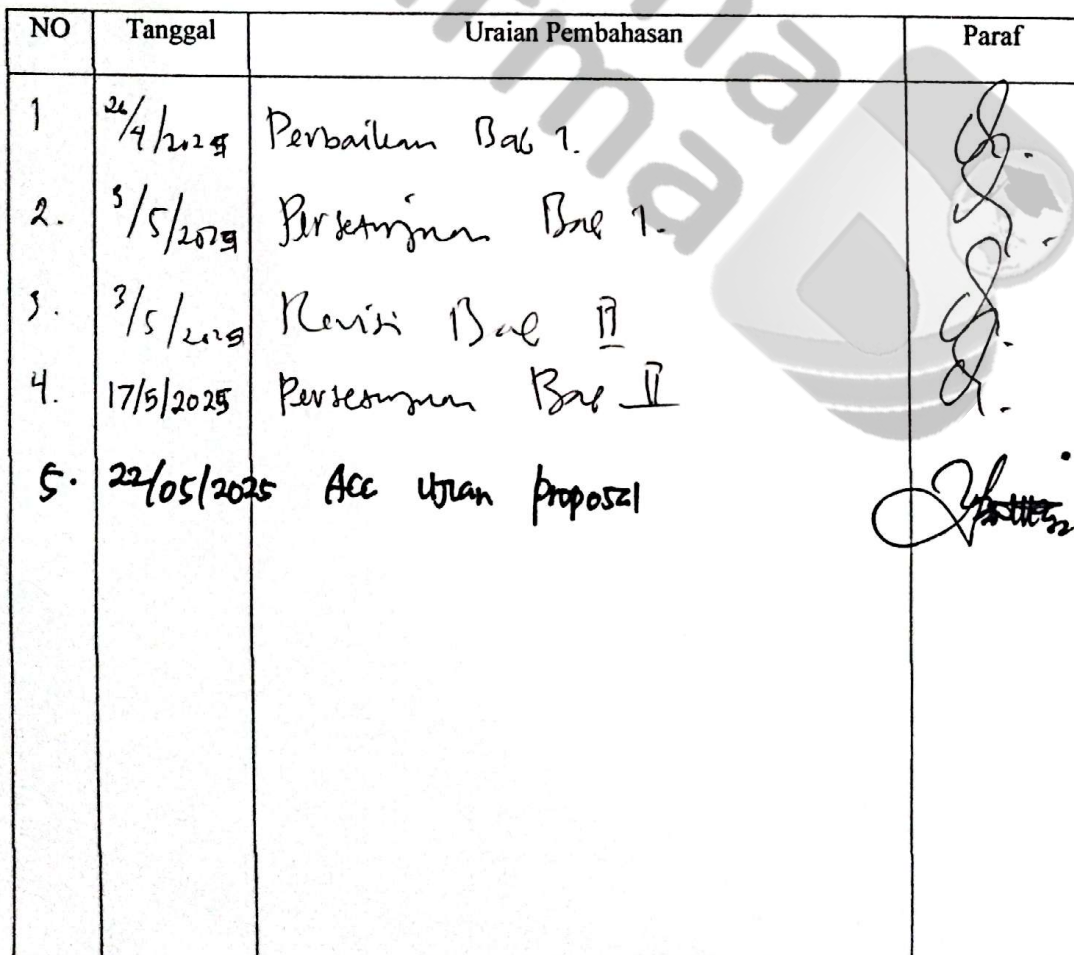 NO Tanggal Uraian Pembahasan Paraf
1 26/4/2025 Perbaikan Bab 1.
2. 3/5/2025 Persetujuan Bab 1.
3. 3/5/2025 Revisi Bab II
4. 17/5/2025 Persetujuan Bab II
5. 22/05/2025 Acc Ujian proposal